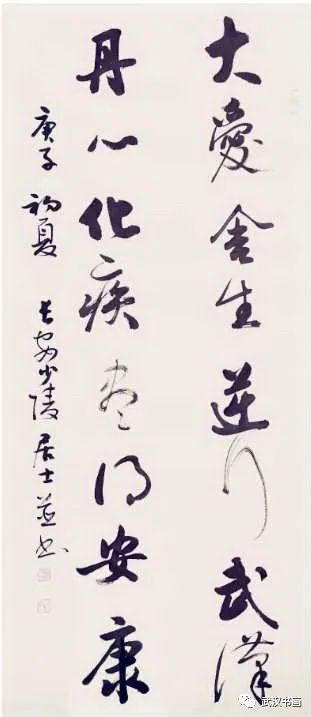 大愛舍生逆行武漢
丹心化疾尽得安康
庚子初夏 长安少陵居士並书
武汉书画